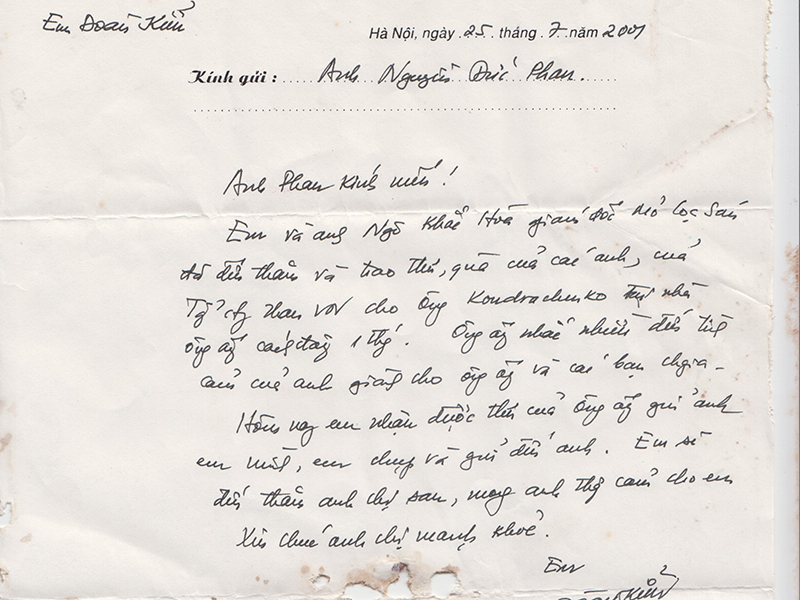 Em Đoàn Kiển
Hà Nội, ngày 25 tháng 7 năm 2001
Kính gửi : Anh Nguyễn Đức Phan.
Anh Phan Kính mến!
Em và ang Ngô Khắc Hoà giám đốc Mỏ Cọc Sáu
đã đến thăm và trao thư, quà của các anh, của
Tổ cty than VN cho Ông Kondrachenko tại nhà
ông ấy cách đây 1 thg. Ông ấy nhắc nhiều đến tình
cảm của anh giành cho ông ấy và các bạn chgia-
Hôm nay em nhận được thư của Ông ấy gửi anh
em mình, em chụp và gửi đến anh. Em sẽ
đến thăm anh chị sau, mong anh thg cảm cho em
Xin chúc anh chị mạnh khoẻ.
Em
Đoàn Kiển